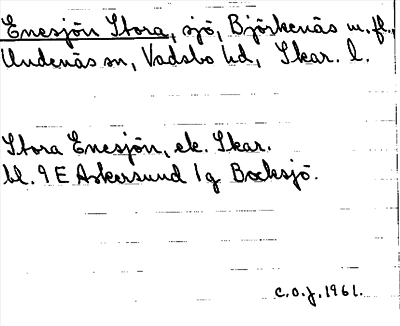 Enesjön Stora, sjö, Björkenäs m.fl.,
Undenäs sn, Vadsbo hd, Skar. l.
Stora Enesjön, ek. Skar.
bl. 9 E Askersund 1g Bocksjö.
C.O.J. 1961.